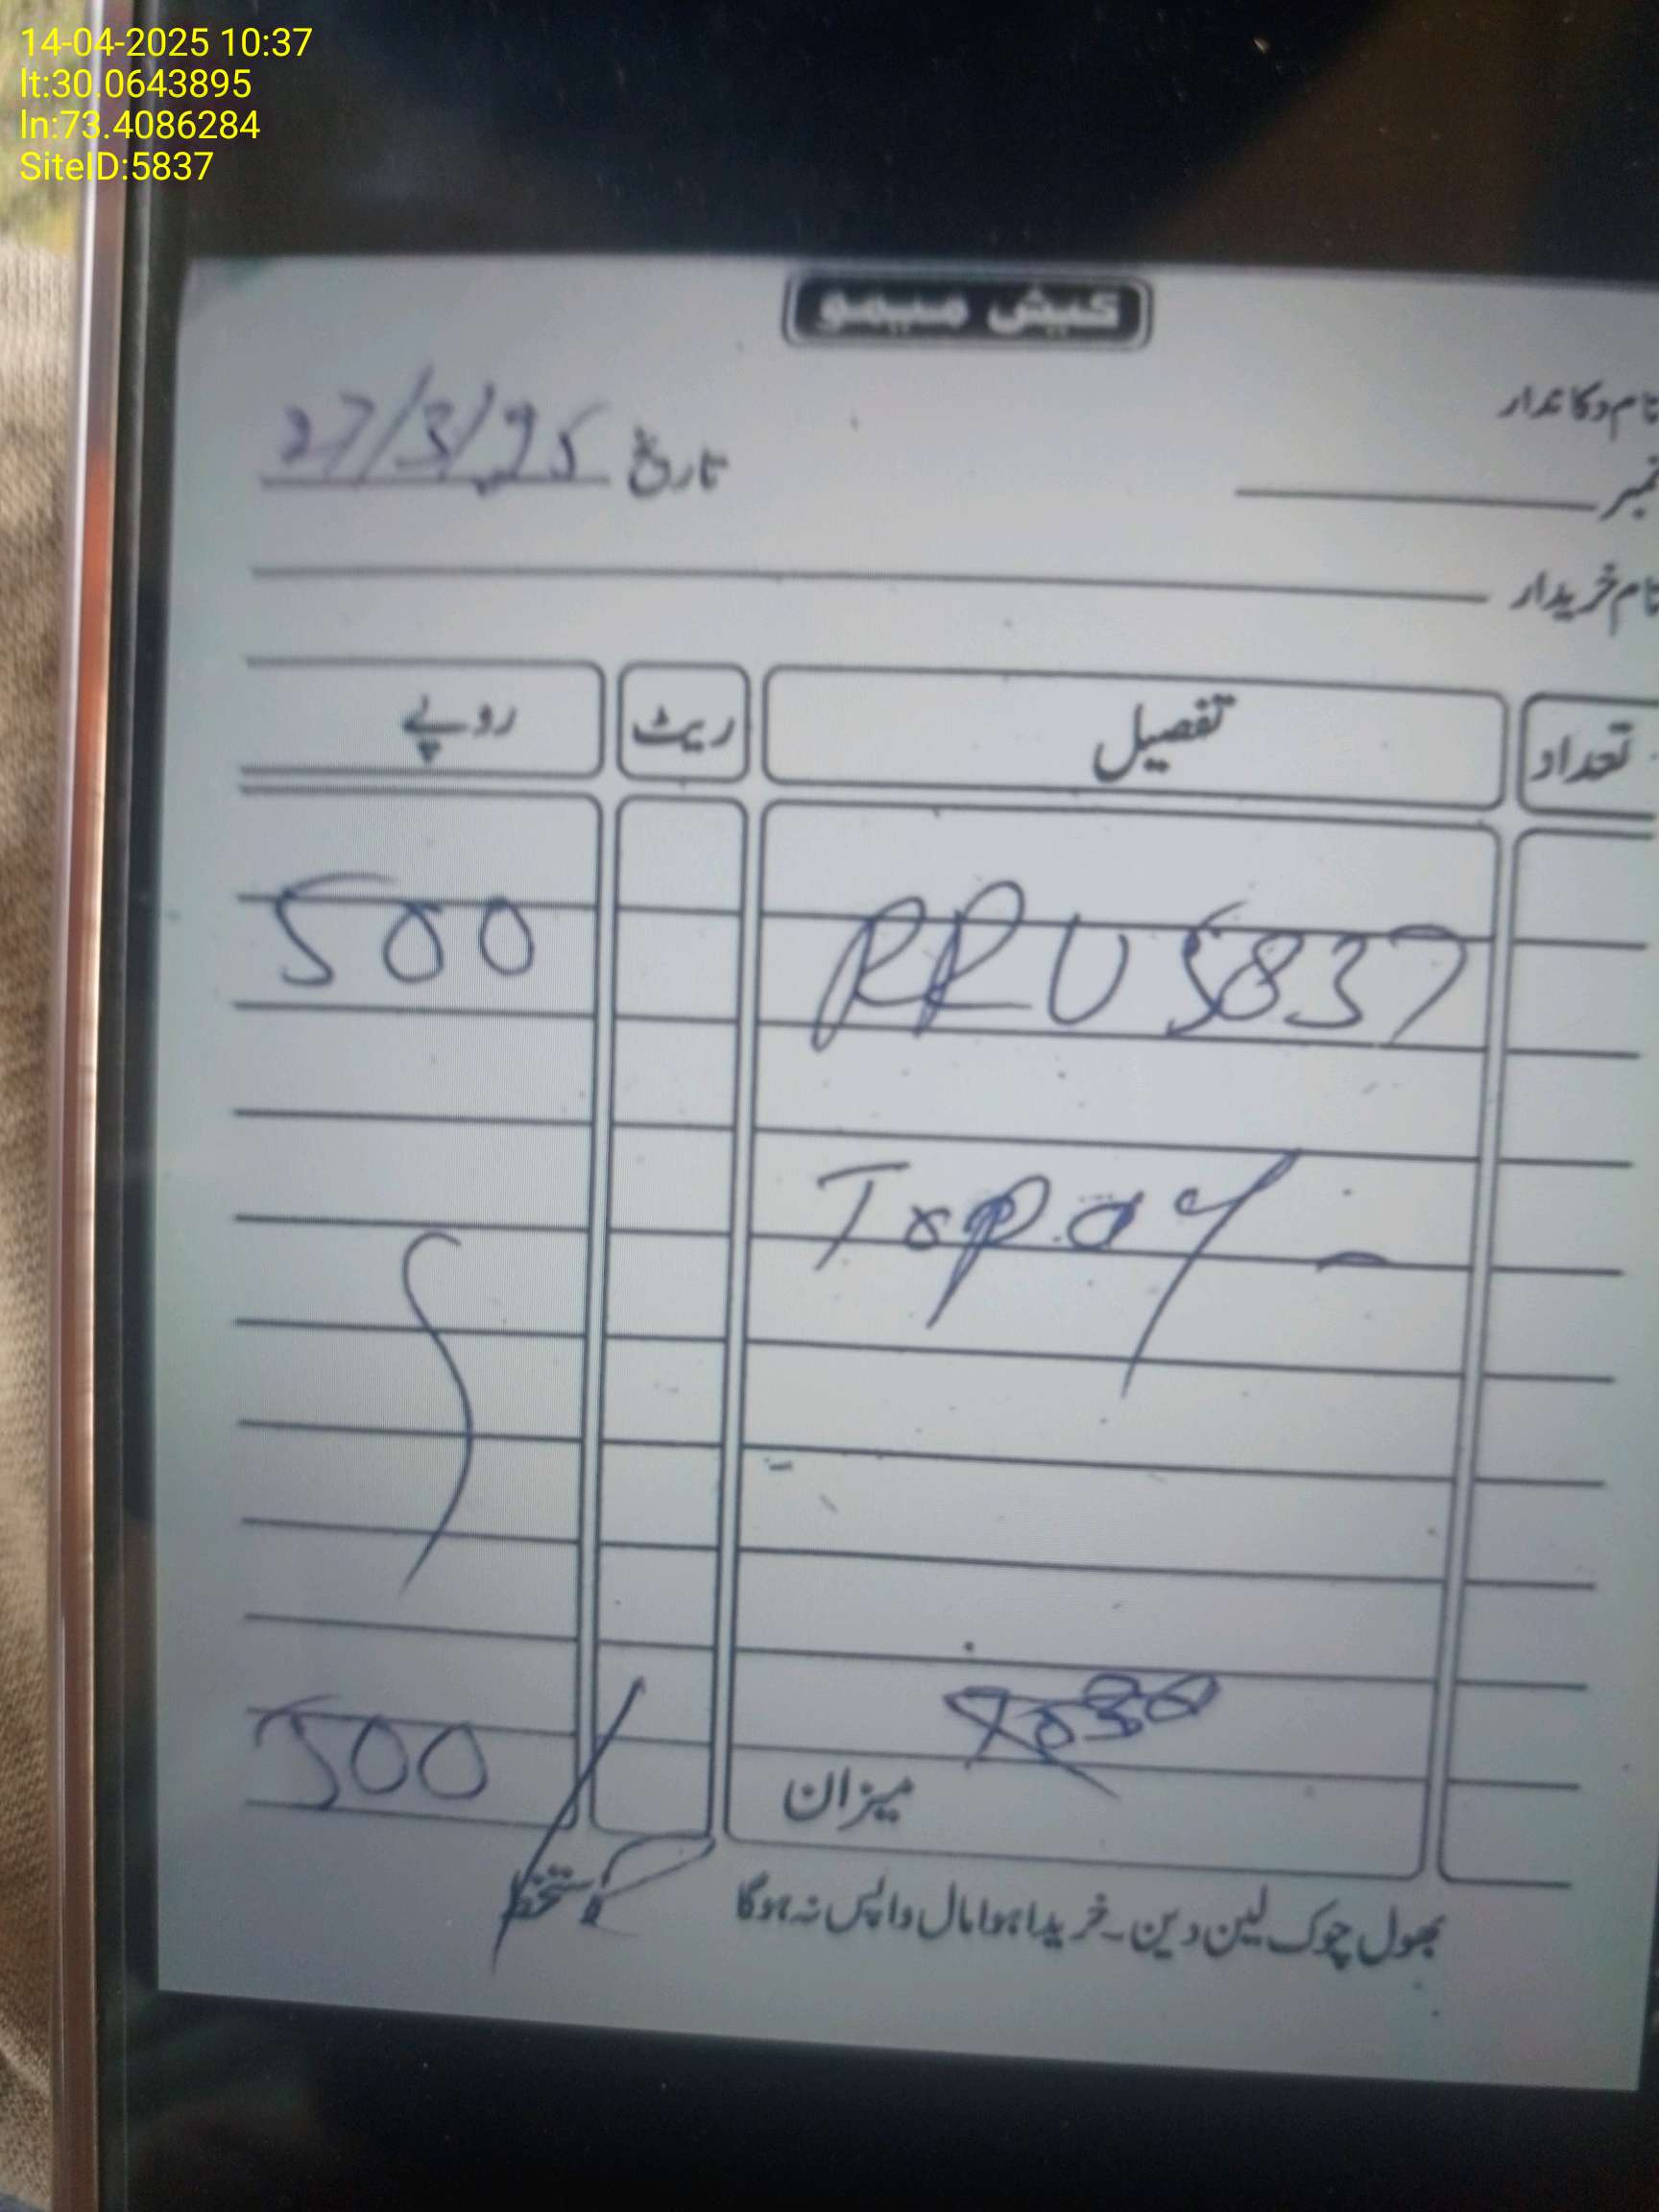 14-04-2025 10:37
lt:30.0643895
ln:73.4086284
SiteID:5837
کیش میمو
نام دکاندار
نمبر
تاریخ 27/3/25
نام خریدار
تعداد تفصیل ریٹ روپے
RRU 5837 500
میزان 500
بھول چوک لین دین۔ خریدا ہوا مال واپس نہ ہوگا دستخط